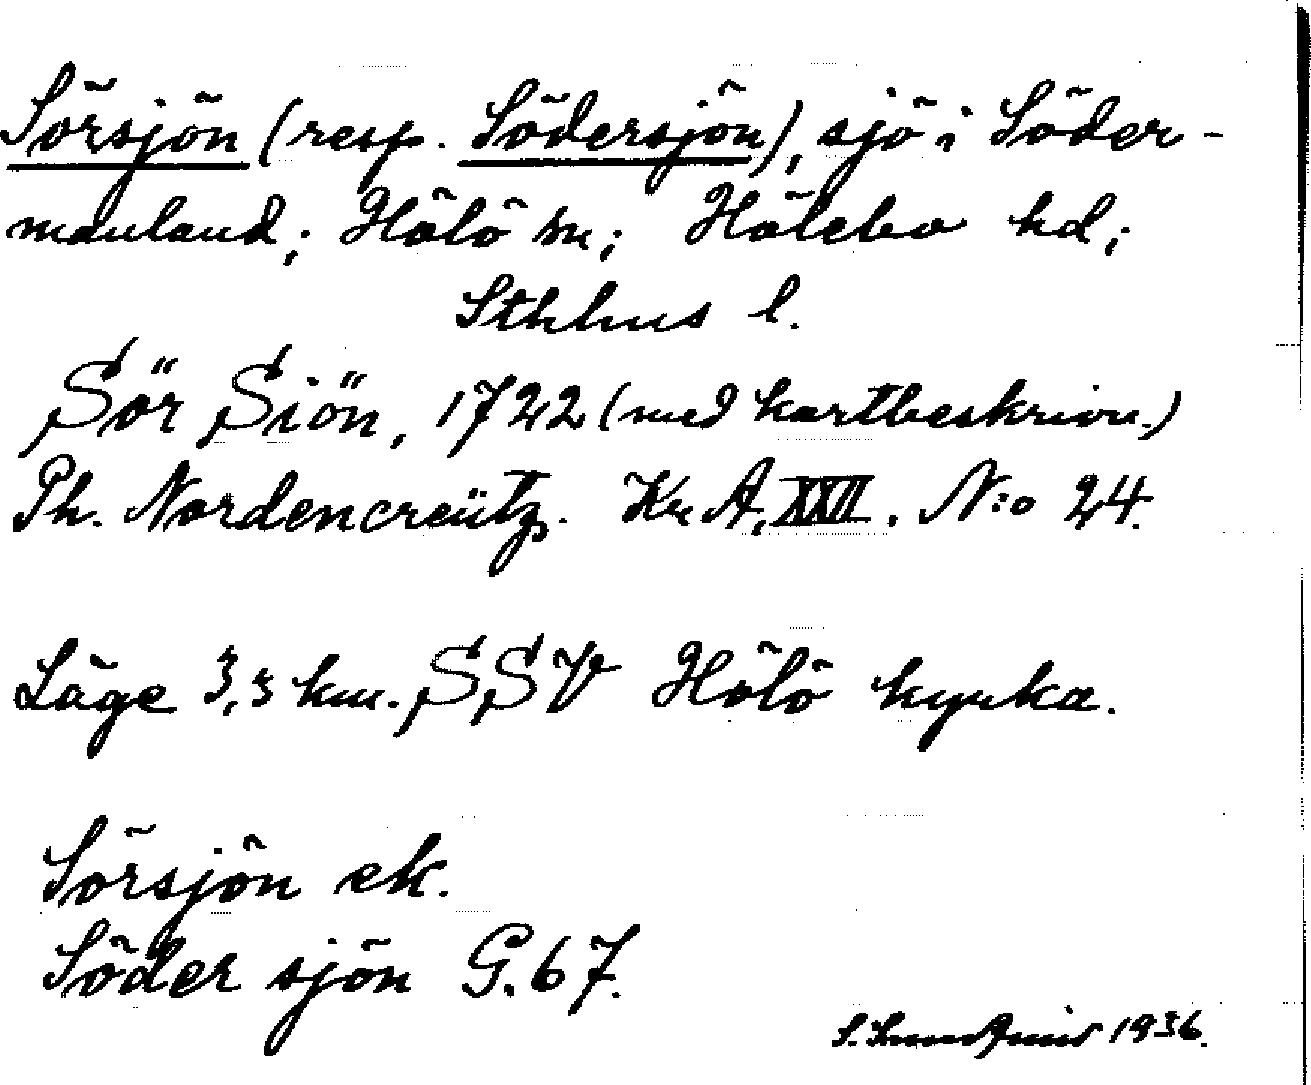 Sörsjön (resp. Södersjön), sjö i Söder-
manland; Hölö sn; Hölebo hd;
Sthlms l.
Sör Siön, 1722 (med kartbeskrivn.)
Ph. Nordencreütz. Kr A, XXII. N:o 24.
Läge 3,3 km. SSV Hölö kyrka.
Sörsjön ek.
Söder sjön G. 67.
S. 1936.